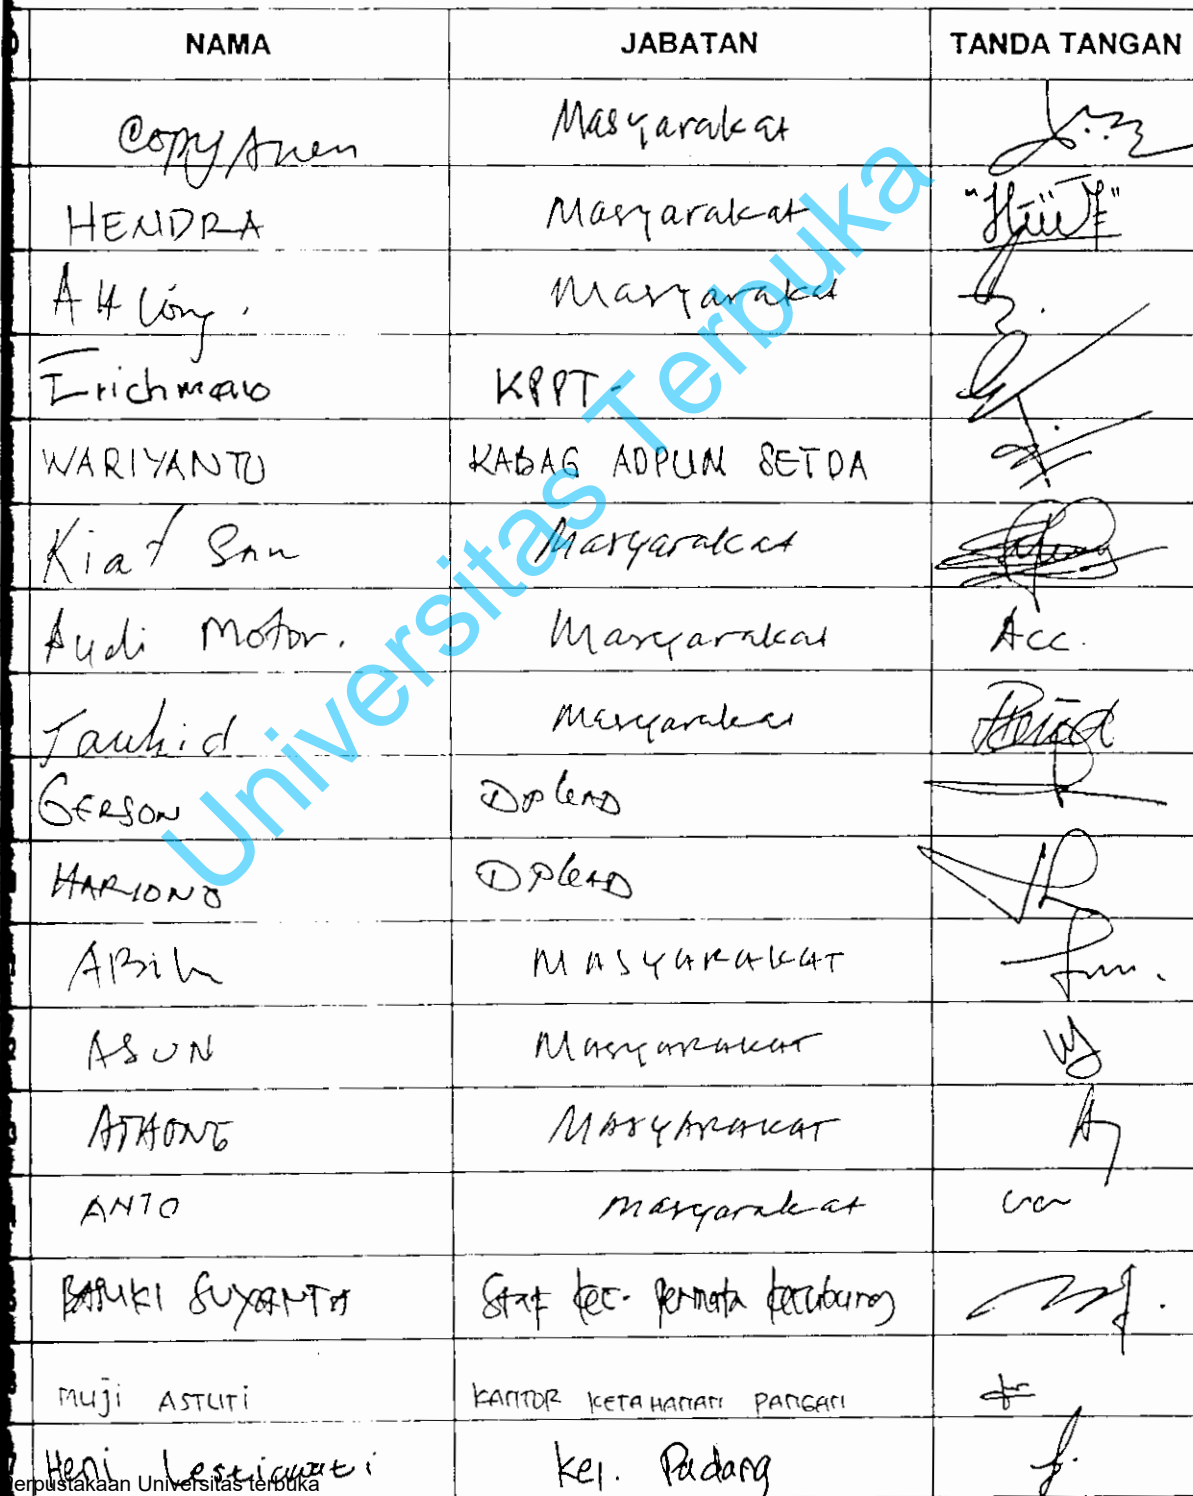 NAMA JABATAN TANDA TANGAN
Copy Anen Masyarakat
HENDRA Masyarakat
AHLiong. Masyarakat
Erichmawo KPPT.
WARIYANTO KABAG ADPUM SETDA
Kiat San Masyarakat
Audi Motor. Masyarakat Acc.
Tauhid Masyarakat
GERSON DPRD
HARIONO DPRD
ABiL MASYARAKAT
ASUN Masyarakat
ATHONG MASYARAKAT
ANTO Masyarakat
BASUKI SUYANTO Staf kec. Permata Kecubung
muji ASTUTi KANTOR KETAHANAN PANGAN
Heni Lestiawati Kel. Padang
Universitas Terbuka
Perpustakaan Universitas terbuka